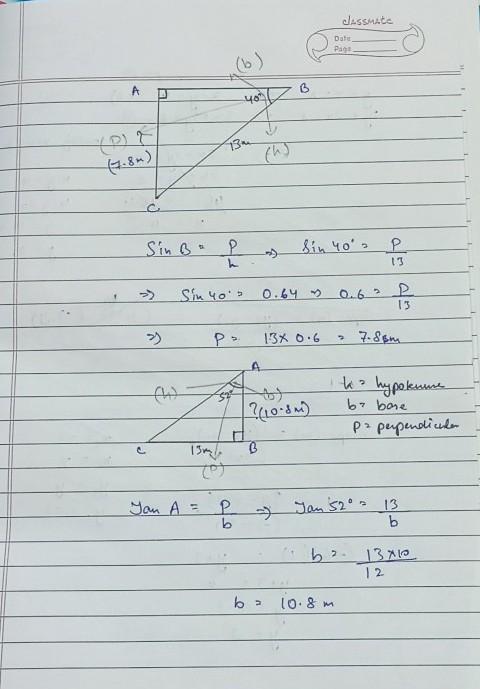 classmate
Date
Page
(b)
A
B
40°
(P) ?
(7.8m)
13m
(h)
C
Sin B = P/h => Sin 40° = P/13
=> Sin 40° = 0.64 => 0.6 = P/13
=> P = 13 x 0.6 = 7.8 m
A
(h)
52°
(b)
?(10.8m)
h = hypotenuse
b = base
P = perpendicular
C
13m
B
(P)
Tan A = P/b => Tan 52° = 13/b
b = 13 x 10/12
b = 10.8 m